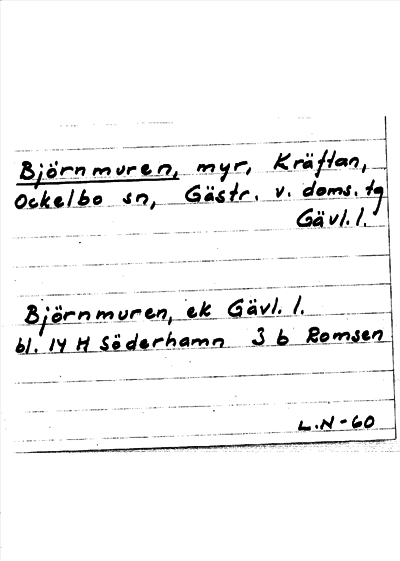 Björnmuren, myr, Kräftan,
Ockelbo sn, Gästr. v. doms. tg
Gävl. l.
Björnmuren, ek Gävl. l.
bl. 14 H Söderhamn 3 b Romsen
L.N-60